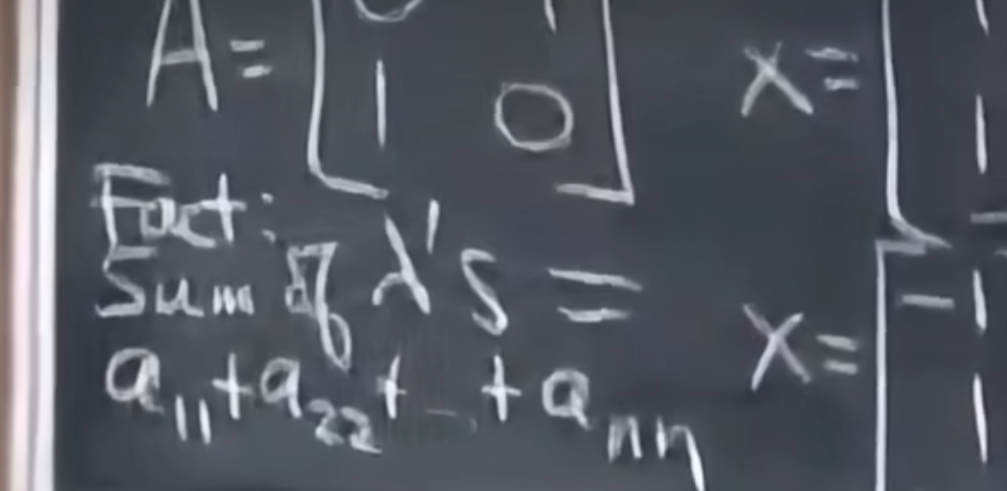 A = [0 1
1 0]
x = [1
1]
Fact:
Sum of λ's =
a₁₁ + a₂₂ + … + aₙₙ
x = [-1
1]